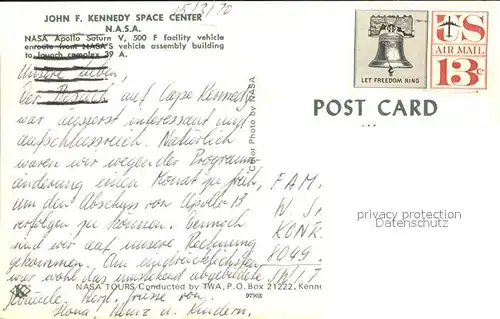 15/3/70
JOHN F. KENNEDY SPACE CENTER
N.A.S.A.
NASA Apollo Saturn V, 500 F facility vehicle
enroute from NASA'S vehicle assembly building
to launch complex 39 A.
LET FREEDOM RING
US
AIR MAIL
13c
POST CARD
Unsere Lieben,
Der Besuch auf Cape Kennedy
war äusserst interessant und
aufschlussreich. Natürlich
waren wir wegen der Programm-
änderung einen Monat zu früh,
um den Abschuss von Apollo 13
verfolgen zu können. Dennoch
sind wir auf unsere Rechnung
gekommen. Am eindrücklichsten
war wohl das umstehend abgebildete
Gebäude. Herzl. Grüsse von
Ilona, Heinz u. Kindern.
Color Photo by NASA
FAM.
W
KONR
8049
privacy protection
Datenschutz
K
NASA TOURS Conducted by TWA, P.O. Box 21222, Kenne
97908